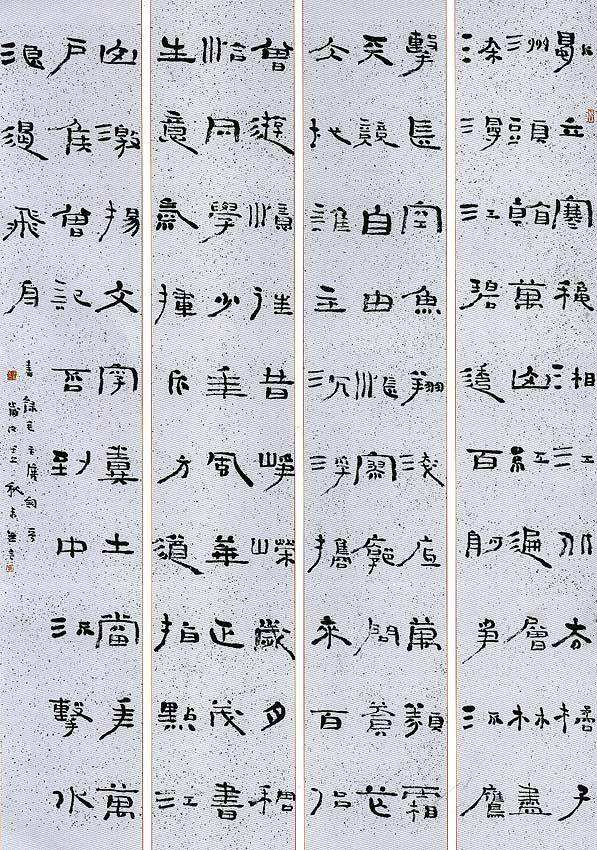 獨立寒穐湘江北去橘子
洲頭看萬山紅遍層林盡
染漫江碧透百舸爭流鷹
擊長空魚翔淺底萬類霜
天競自由悵寥廓問蒼茫
大地誰主沉浮攜來百侶
曾遊憶往昔崢嶸歲月稠
恰同學少年風華正茂書
生意氣揮斥方遒指點江
山激揚文字糞土當年萬
戶侯曾記否到中流擊水
浪遏飛舟
書錄毛主席詞
歲次秋